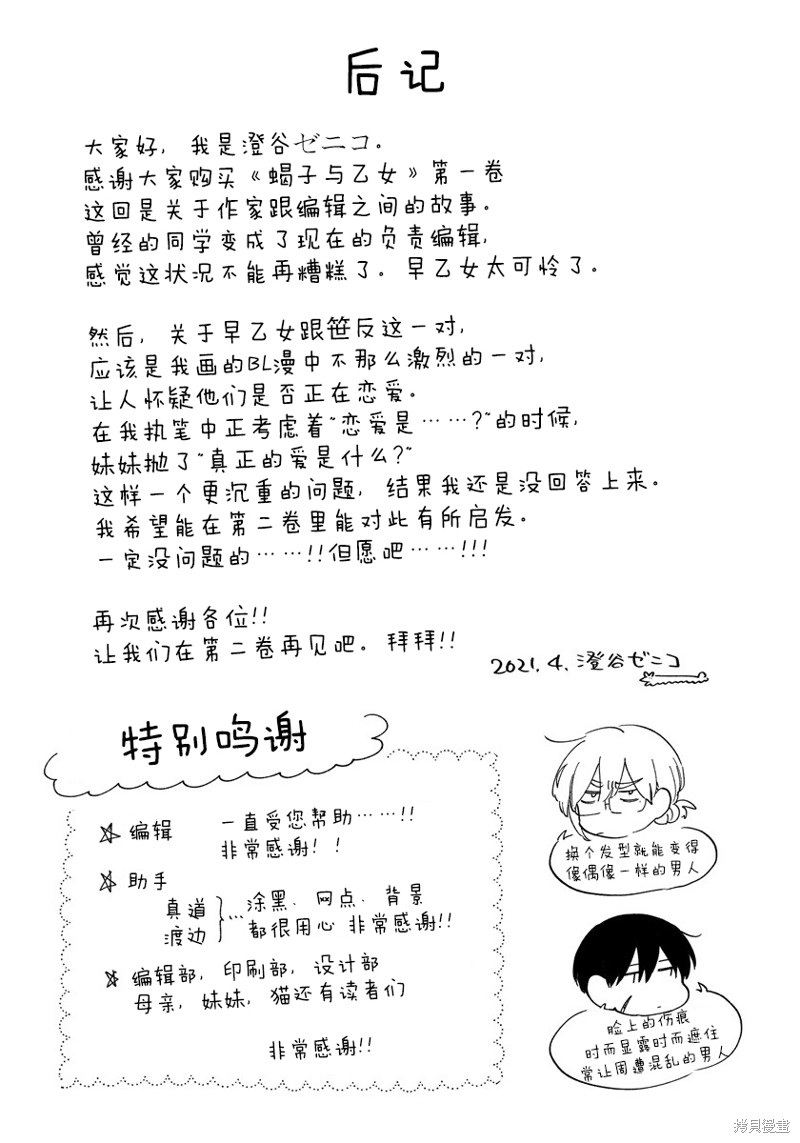 后记
大家好，我是澄谷ゼニコ。
感谢大家购买《蝎子与乙女》第一卷
这回是关于作家跟编辑之间的故事。
曾经的同学变成了现在的负责编辑，
感觉这状况不能再糟糕了。早乙女太可怜了。
然后，关于早乙女跟笹反这一对，
应该是我画的BL漫中不那么激烈的一对，
让人怀疑他们是否正在恋爱。
在我执笔中正考虑着“恋爱是……?”的时候，
妹妹抛了“真正的爱是什么?”
这样一个更沉重的问题，结果我还是没回答上来。
我希望能在第二卷里能对此有所启发。
一定没问题的……!!但愿吧……!!!
再次感谢各位!!
让我们在第二卷再见吧。拜拜!!
2021.4.澄谷ゼニコ
特别鸣谢
☆编辑 一直受您帮助……!!
非常感谢！！
☆助手
真道
渡边
…涂黑、网点、背景
都很用心 非常感谢!!
☆编辑部，印刷部，设计部
母亲，妹妹，猫还有读者们
非常感谢!!
换个发型就能变得
像偶像一样的男人
脸上的伤痕
时而显露时而遮住
常让周遭混乱的男人
拷貝漫畫